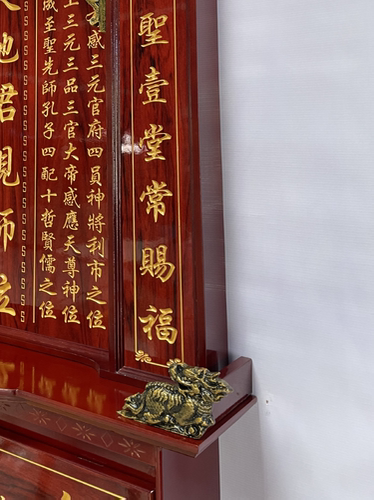 聖壹堂常賜福
感三元官府四員神將利市之位
三元三品三官大帝感應天尊神位
成至聖先師孔子四配十哲賢儒之位
地君親師位